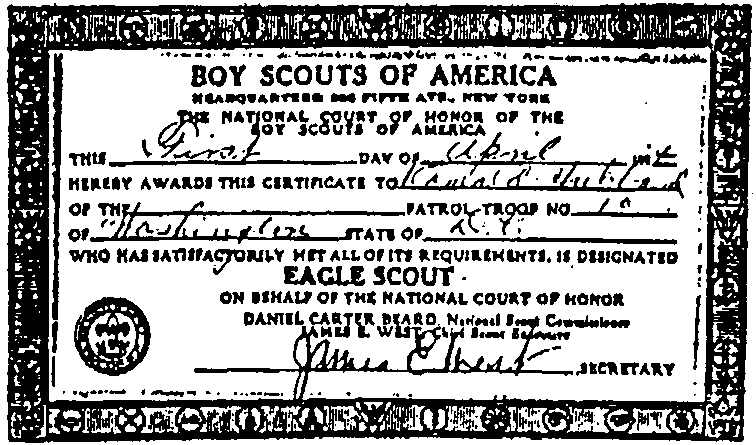 BOY SCOUTS OF AMERICA
HEADQUARTERS 200 FIFTH AVE., NEW YORK
THE NATIONAL COURT OF HONOR OF THE
BOY SCOUTS OF AMERICA
THIS First DAY OF April
HEREBY AWARDS THIS CERTIFICATE TO
OF THE PATROL-TROOP NO. 10
OF Washington STATE OF D.C.
WHO HAS SATISFACTORILY MET ALL OF ITS REQUIREMENTS, IS DESIGNATED
EAGLE SCOUT
ON BEHALF OF THE NATIONAL COURT OF HONOR
DANIEL CARTER BEARD, National Scout Commissioner
JAMES E. WEST, Chief Scout Executive
James E West SECRETARY